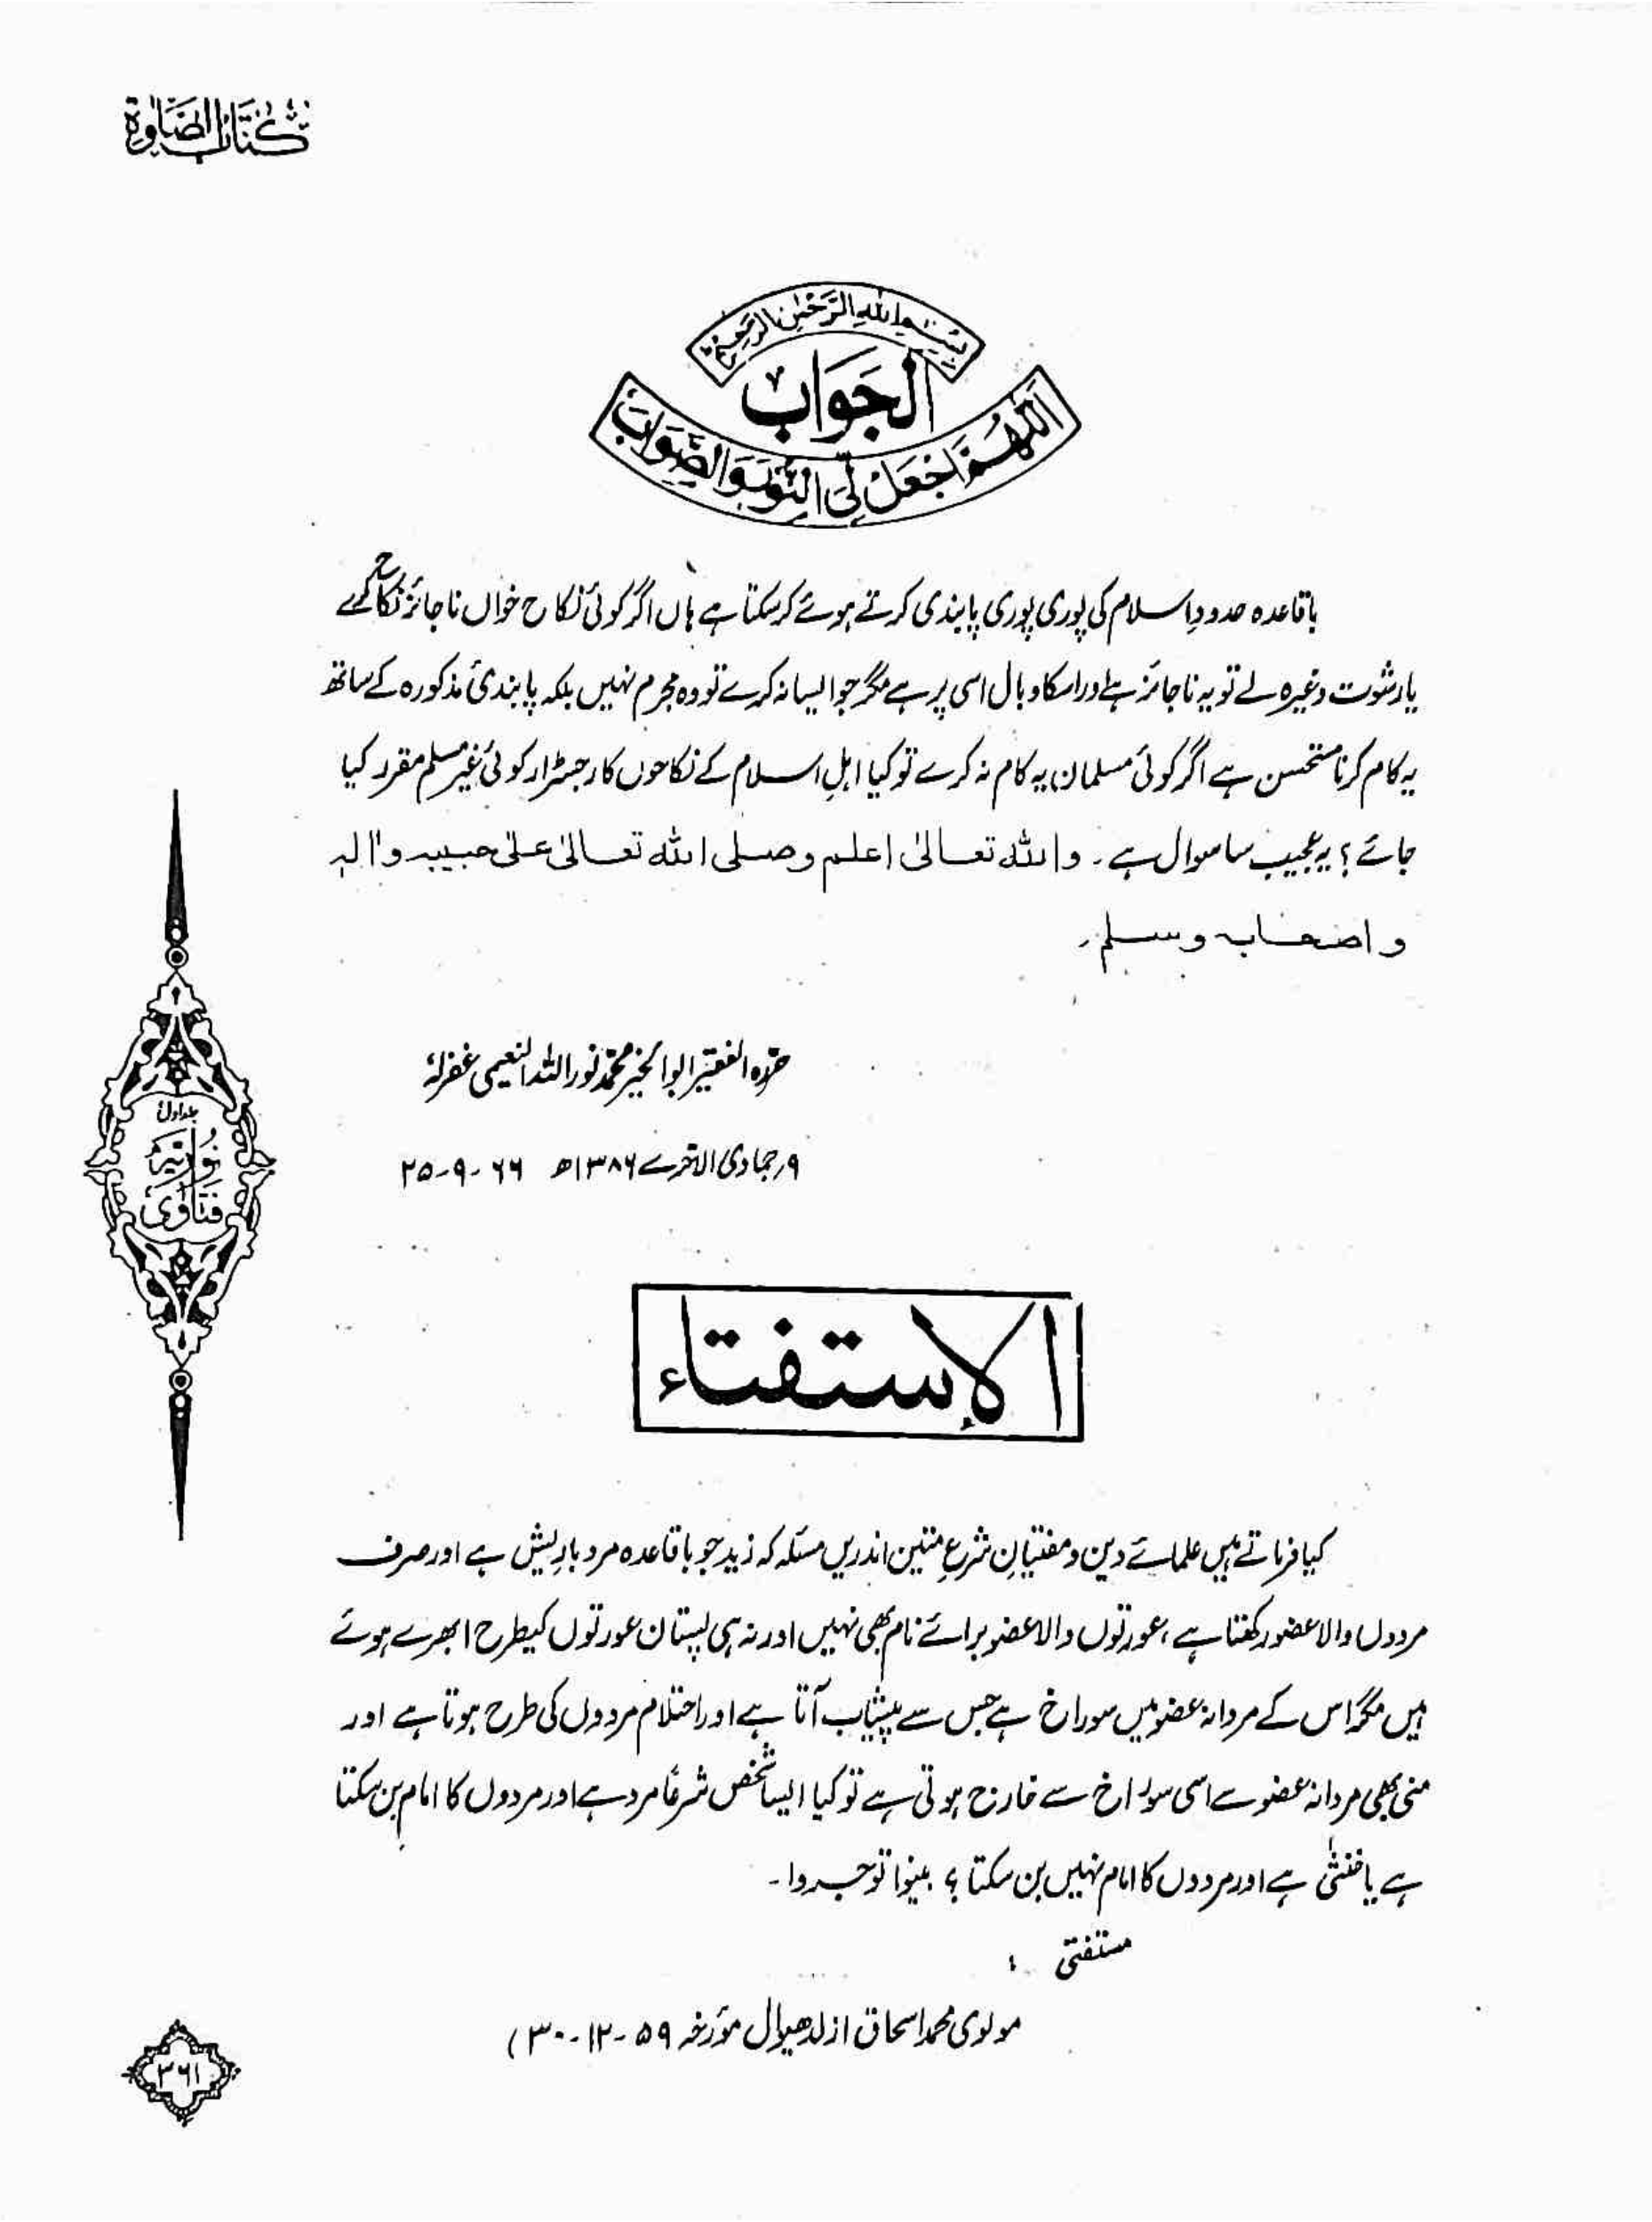 كتاب الصلوة
بسم الله الرحمن الرحيم
الجواب
اللهم اجعل لی النور والصواب
باقاعدہ حدودِ اسلام کی پوری پوری پابندی کرتے ہوئے کرسکتا ہے ہاں اگر کوئی نکاح خواں ناجائز نکاح کرے
یا رشوت وغیرہ لے تو یہ ناجائز ہے اور اسکا وبال اسی پر ہے مگر جو ایسا نہ کرے تو وہ مجرم نہیں بلکہ پابندیٔ مذکورہ کے ساتھ
یہ کام کرنا مستحسن ہے اگر کوئی مسلمان یہ کام نہ کرے تو کیا اہلِ اسلام کے نکاحوں کا رجسٹرار کوئی غیر مسلم مقرر کیا
جائے؟ یہ عجیب سا سوال ہے۔ والله تعالىٰ اعلم وصلى الله تعالىٰ علىٰ حبيبه واٰله
واصحابه وسلم۔
حرّره الفقیر ابوالخیر محمّد نور اللہ النعیمی غفرلہٗ
۹؍جمادی الاخرے ۱۳۸۶ھ ۶۶-۹-۲۵
جلد اول
نوریہ
فتاوی
الإستفتاء
کیا فرماتے ہیں علمائے دین و مفتیانِ شرعِ متین اندریں مسئلہ کہ زید جو باقاعدہ مرد باریش ہے اور صرف
مردوں والا عضو رکھتا ہے، عورتوں والا عضو برائے نام بھی نہیں اور نہ ہی پستان عورتوں کیطرح ابھرے ہوئے
ہیں مگر اس کے مردانہ عضو میں سوراخ ہے جس سے پیشاب آتا ہے اور احتلام مردوں کی طرح ہوتا ہے اور
منی بھی مردانہ عضو سے اسی سوراخ سے خارج ہوتی ہے تو کیا ایسا شخص شرعًا مرد ہے اور مردوں کا امام بن سکتا
ہے یا خنثٰی ہے اور مردوں کا امام نہیں بن سکتا؟ بینوا توجروا۔
مستفتی :
مولوی محمد اسحاق از لدھیوال مؤرخہ ۵۹-۱۲-۳۰)
۳۶۱